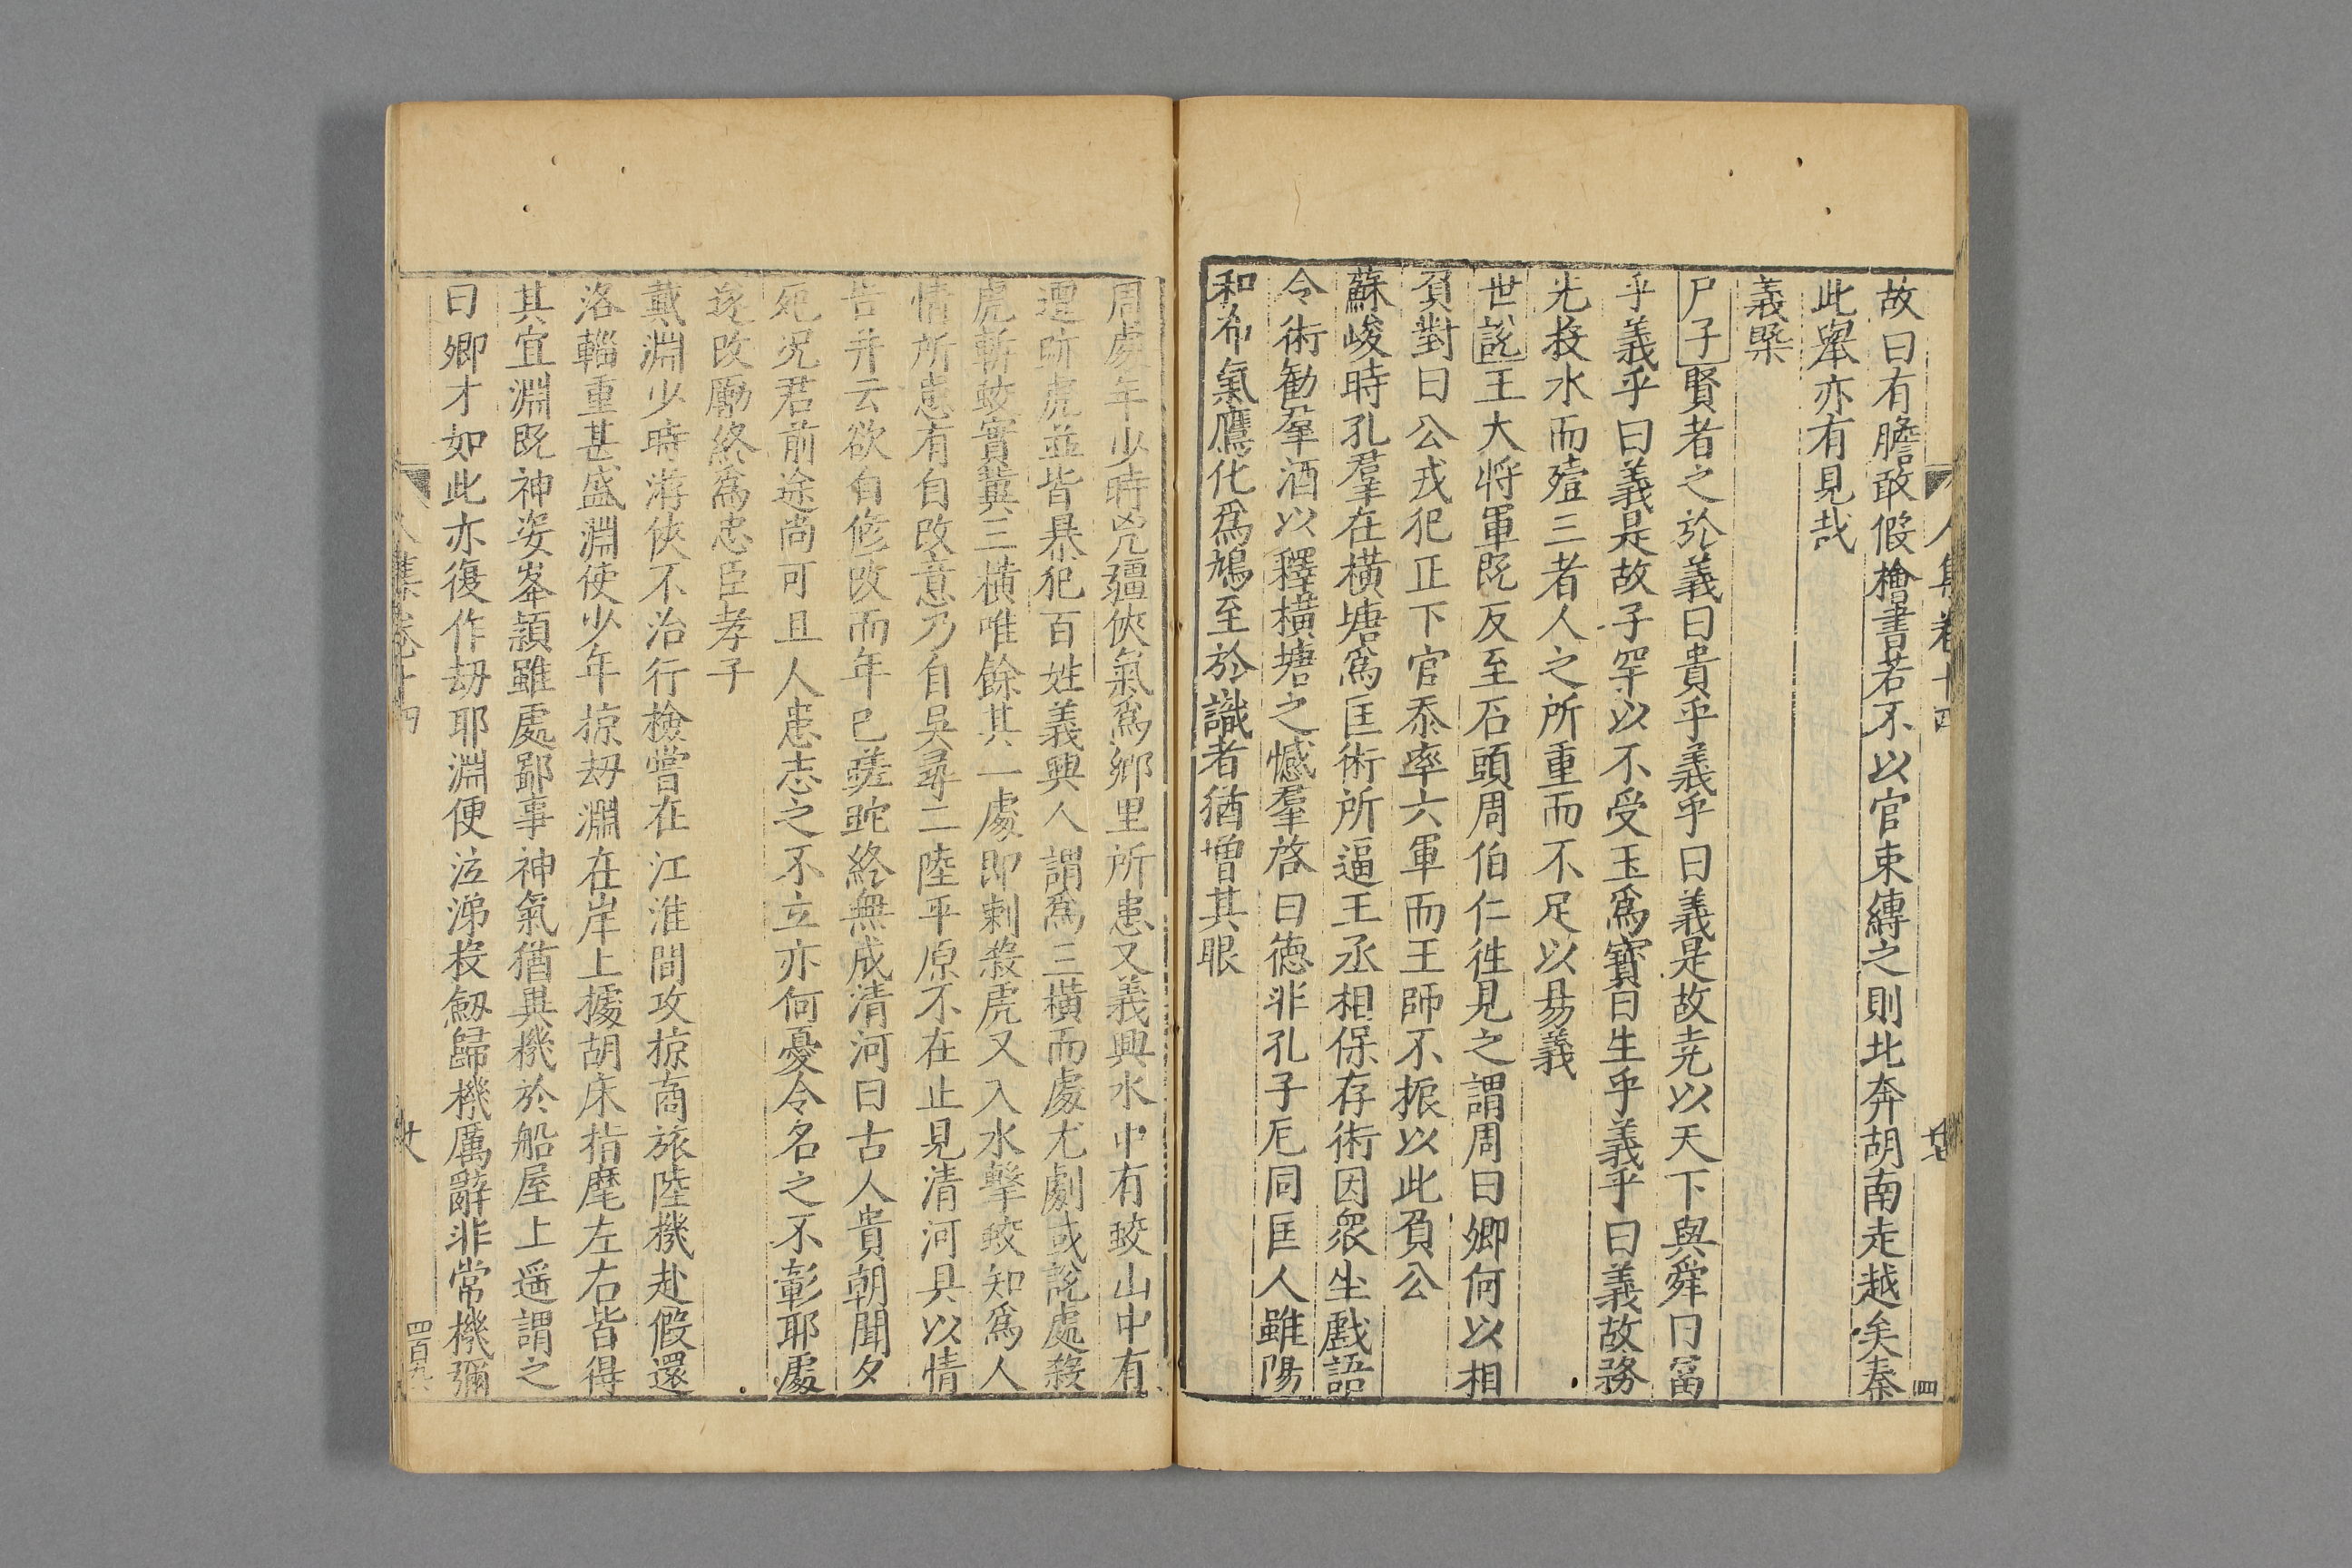 人集卷十四
故曰有膽敢假檜書若不以官束縛之則北奔胡南走越矣秦
此舉亦有見哉
義槩
尸子賢者之於義曰貴乎義乎曰義是故堯以天下與舜曰富
乎義乎曰義是故子罕以不受玉爲寳曰生乎義乎曰義故務
光投水而殪三者人之所重而不足以易義
世說王大將軍既反至石頭周伯仁徃見之謂周曰卿何以相
負對曰公戎犯正下官忝率六軍而王師不振以此負公
蘇峻時孔羣在橫塘爲匡術所逼王丞相保存術因衆坐戲語
令術勸羣酒以釋橫塘之憾羣答曰德非孔子厄同匡人雖陽
和布氣鷹化爲鳩至於識者猶増其眼
周處年少時兇彊俠氣爲鄉里所患又義興水中有蛟山中有
邅跡虎並皆暴犯百姓義興人謂爲三橫而處尤劇或說處殺
虎斬蛟實冀三橫唯餘其一處即刺殺虎又入水擊蛟知爲人
情所患有自改意乃自吳尋二陸平原不在止見清河具以情
告并云欲自修改而年已蹉跎終無成清河曰古人貴朝聞夕
死况君前途尚可且人患志之不立亦何憂令名之不彰耶處
遂改勵終爲忠臣孝子
戴淵少時游俠不治行檢嘗在江淮間攻掠商旅陸機赴假還
洛輜重甚盛淵使少年掠刼淵在岸上據胡床指麾左右皆得
其宜淵既神姿峯頴雖處鄙事神氣猶異機於船屋上遥謂之
曰卿才如此亦復作刼耶淵便泣涕投劔歸機厲辭非常機彌
人集卷十四
四百九